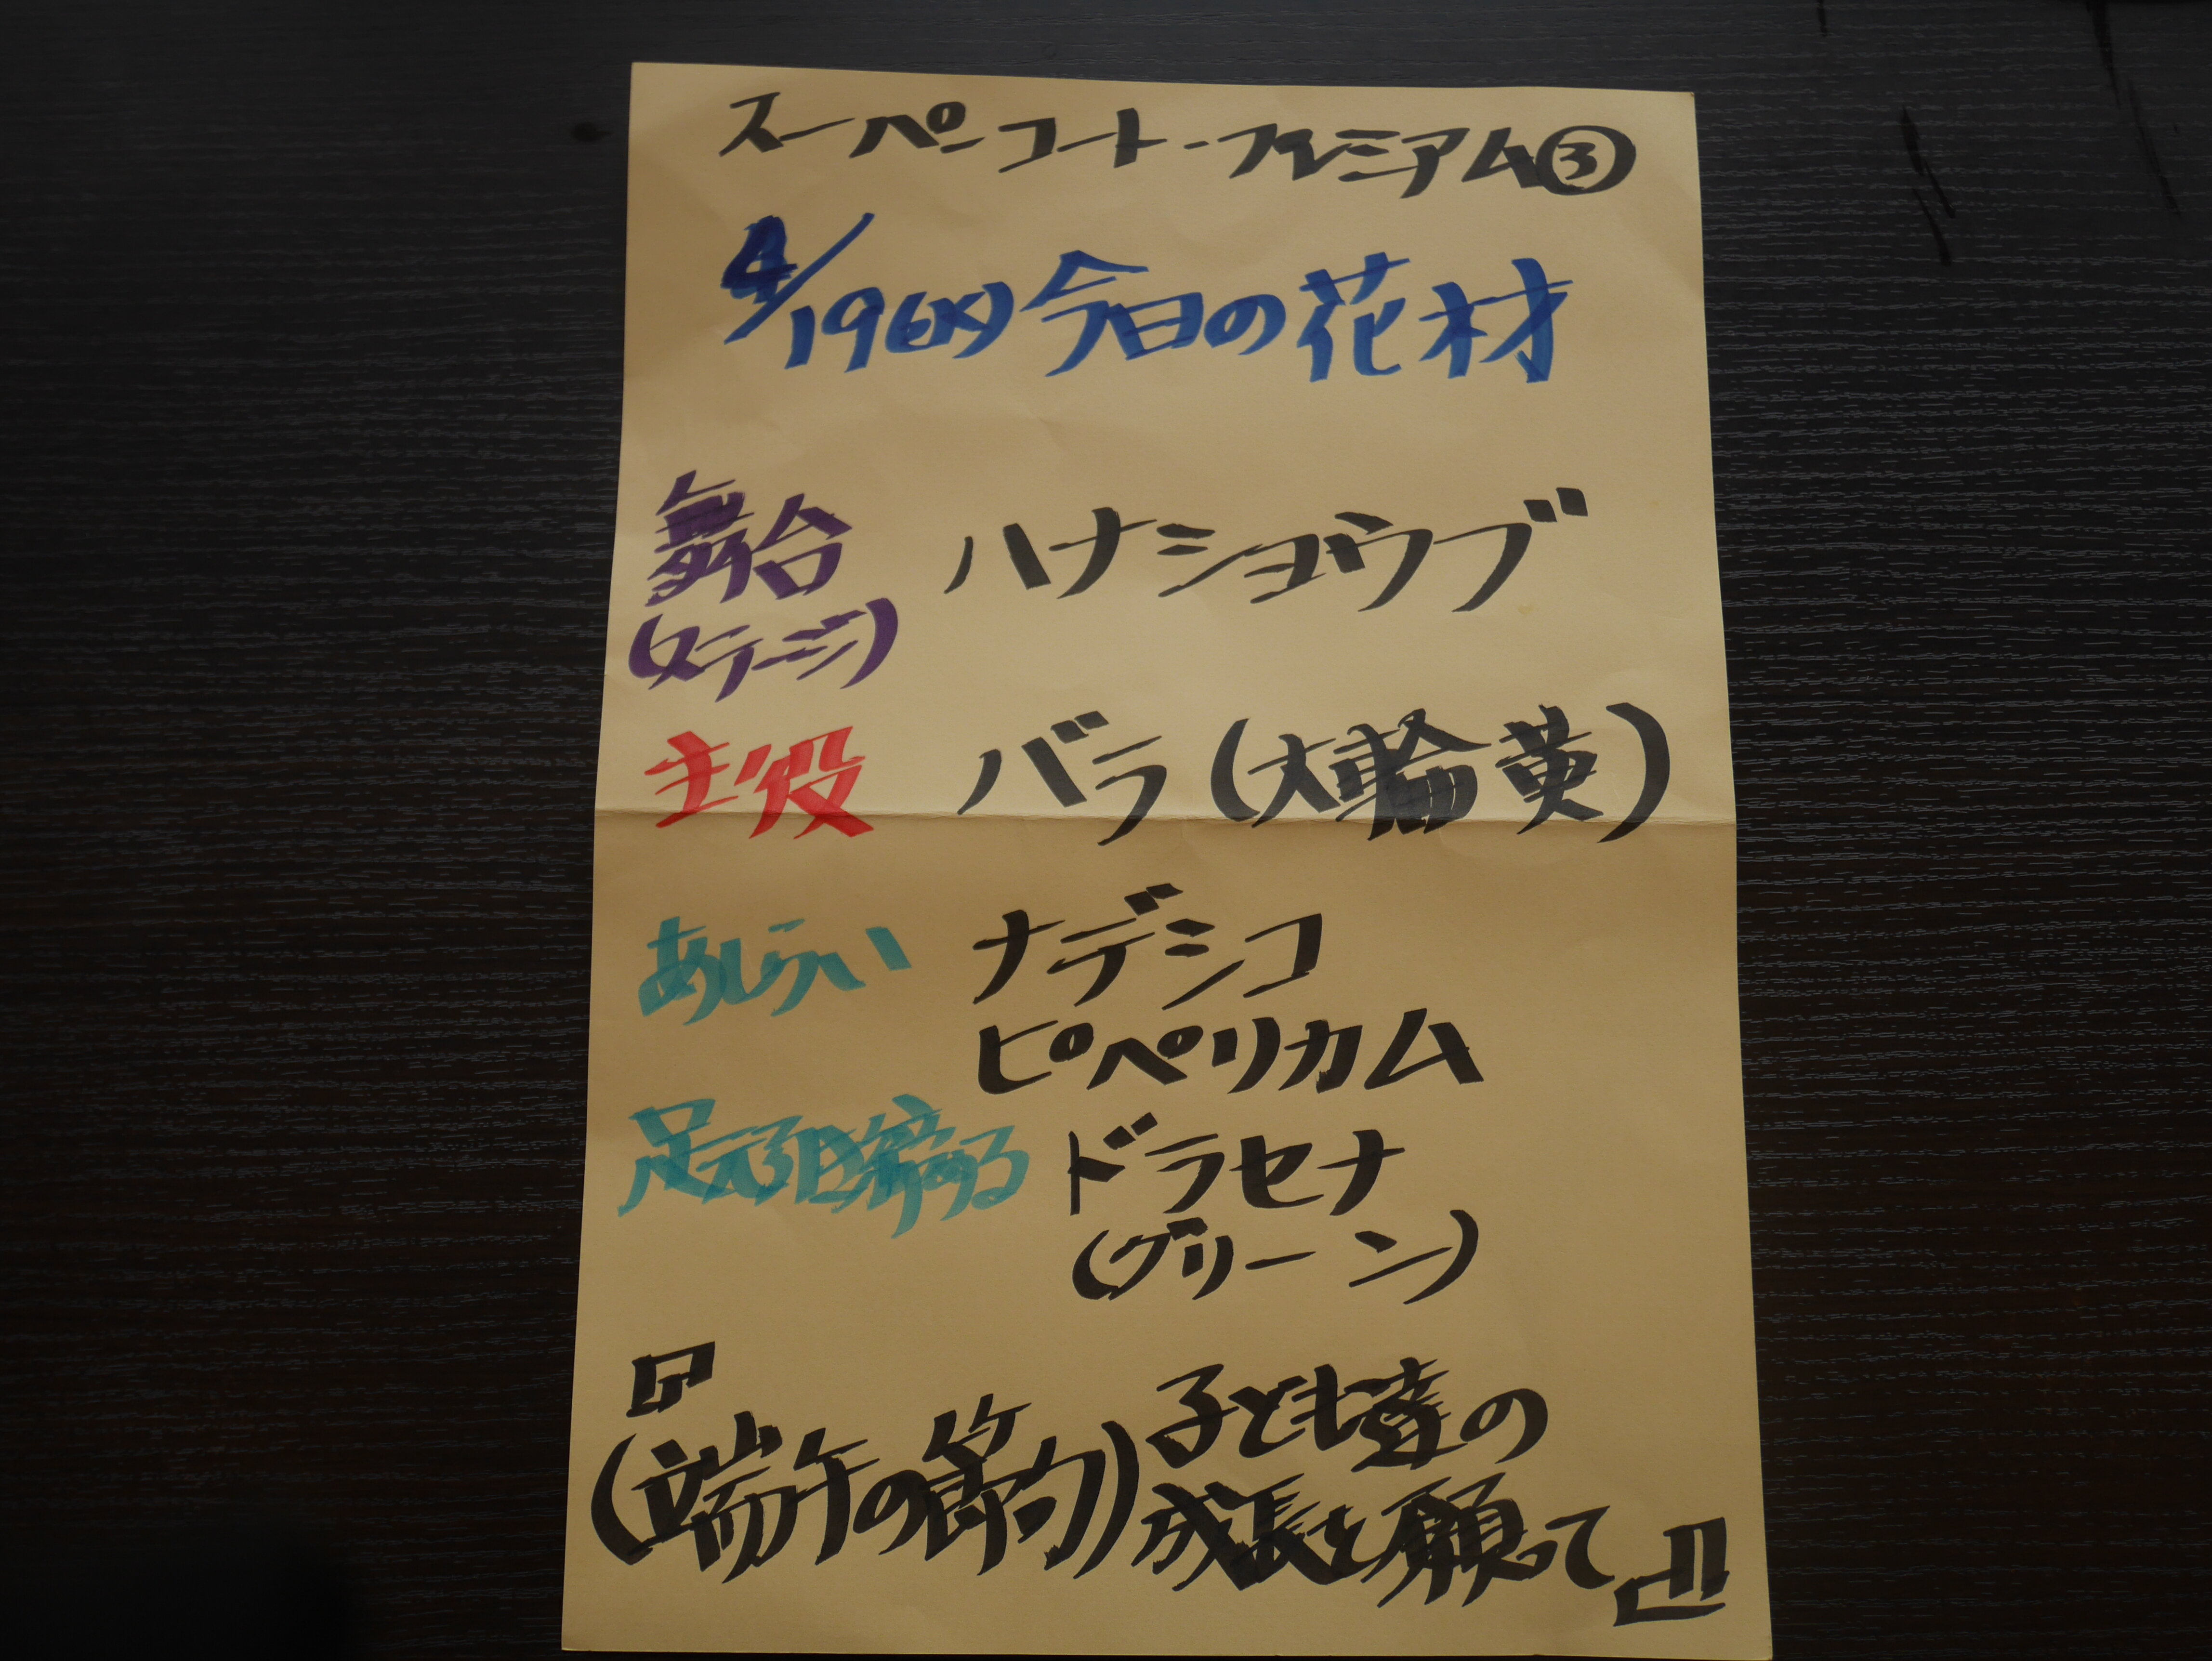 スーパーコート・プレミアム③
4/19(火)今日の花材
舞台 ハナショウブ
(ステージ)
主役 バラ(大輪 黄)
あしらい ナデシコ
ヒペリカム
足元を引き締める ドラセナ
(グリーン)
『(端午の節句)子ども達の
成長を願って』